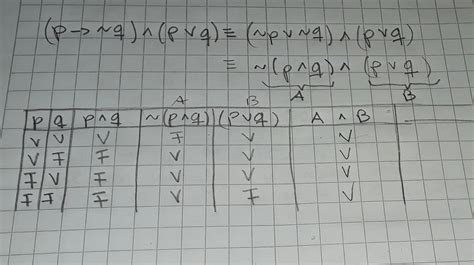 (p → ~q) ∧ (p ∨ q) ≡ (~p ∨ ~q) ∧ (p ∨ q)
≡ ~(p ∧ q) ∧ (p ∨ q)
A B
A B
p q p ∧ q ~(p ∧ q) (p ∨ q) A ∧ B
V V V F V V
V F F V V V
F V F V V V
F F F V F V